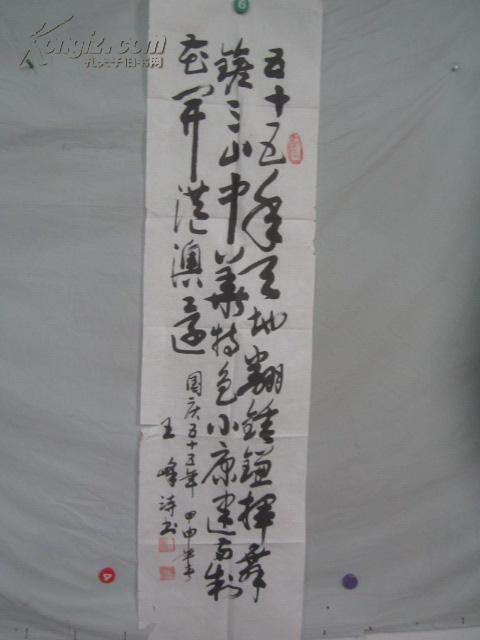 Kongfz.com
孔夫子旧书网
五十五年天地翻錘鎌揮舞
三山中華特色小康建两制
花开港澳還
国庆五十五年 甲申
王峰诗书